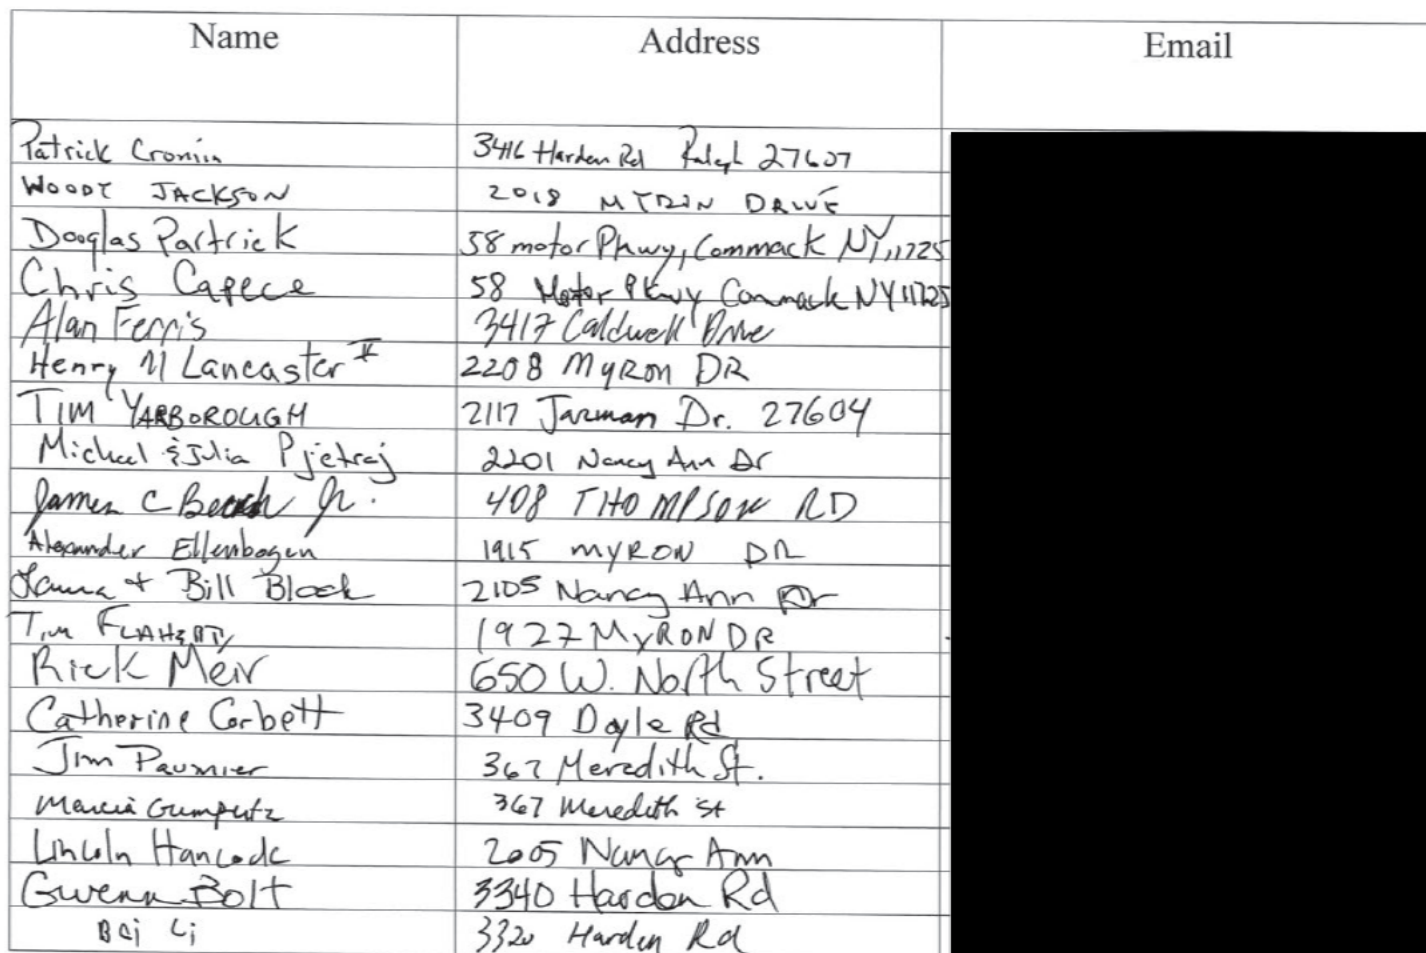 Name Address Email
Patrick Cronin 3416 Harden Rd Raleigh 27607
WOODY JACKSON 2018 MYRON DRIVE
Douglas Partrick 58 motor Pkwy, Commack NY, 11725
Chris Capece 58 Motor Pkwy Commack NY 11725
Alan Ferris 3417 Caldwell Drive
Henry M Lancaster II 2208 MYRON DR
TIM YARBOROUGH 2117 Jarman Dr. 27604
Michael & Julia Pjetraj 2201 Nancy Ann Dr
James C Jr. 408 THOMPSON RD
Alexander Ellenbogen 1915 MYRON DR
Laura + Bill Block 2105 Nancy Ann Dr
Tim FLAHERTY 1927 MYRON DR
Rick Meir 650 W. North Street
Catherine Corbett 3409 Doyle Rd
Jim Paumier 367 Meredith St.
Marcia Gumpertz 367 Meredith St
Lincoln Hancock 2005 Nancy Ann
Gwenn Bolt 3340 Harden Rd
Bai Li 3320 Harden Rd